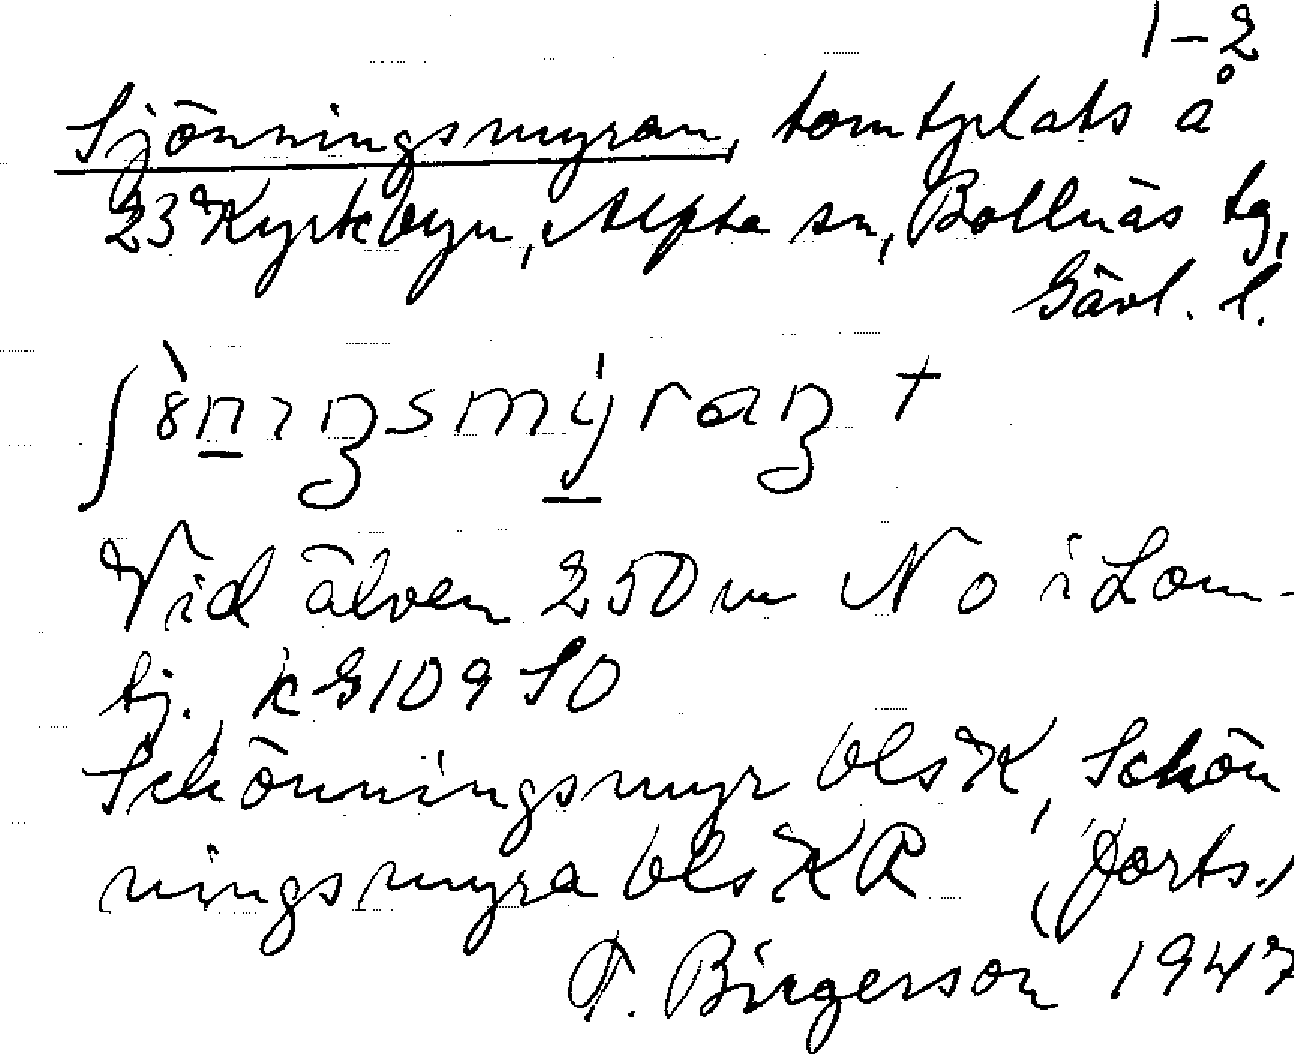 1-2
Sjönningsmyran, tomtplats å
23 Kyrkbyn, Alfta sn, Bollnäs tg,
Gävl. l.
ʃö̀nıŋsmýraŋ +
Vid älven 250 m NO i Lom-
tj. k G109 SO
Schönningsmyr blsK, Schön
ningsmyra blsKR (Forts.)
T. Birgerson 1947